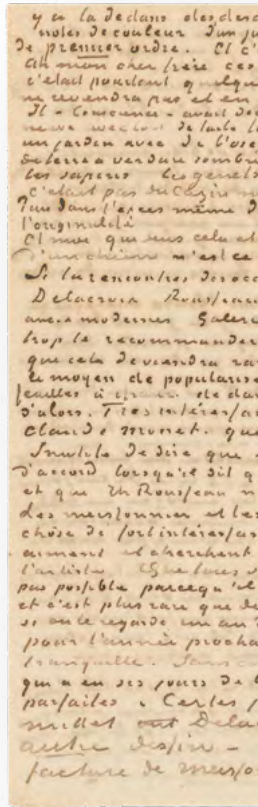 y a là dedans des des
notes de couleur d'un ju
de premier ordre. Et c'
Ah mon cher frère ces
c'était pourtant quelqu
ne reviendra pas et en
un jardin avec de l'ose
de terre à verdure sombre
les sapins les genets
c'etait pas du Cazin m
l'excès même d
l'originalité
Et moi que vois cela et
d'un chien n'est ce
Si tu rencontres des occ
Delacroix Rousseau
anc. & modernes Galerie
trop te recommander
que cela deviendra ra
le moyen de popularise
feuilles à 1 franc de da
d'alors. Très intéressa
Claude Monet. que
Inutile de dire que
d'accord lorsqu'il dit q
et que Th Rousseau n
des meissonnier et les
chose de fort intéressan
aiment et cherchent
l'artiste
pas possible parcequ'il
et c'est plus rare que de
si on le regarde un an
pour l'année procha
tranquille. Sans
qui a eu ses jours de
parfaites. Certes
millet ont Dela
autre dessin –
facture de meisso